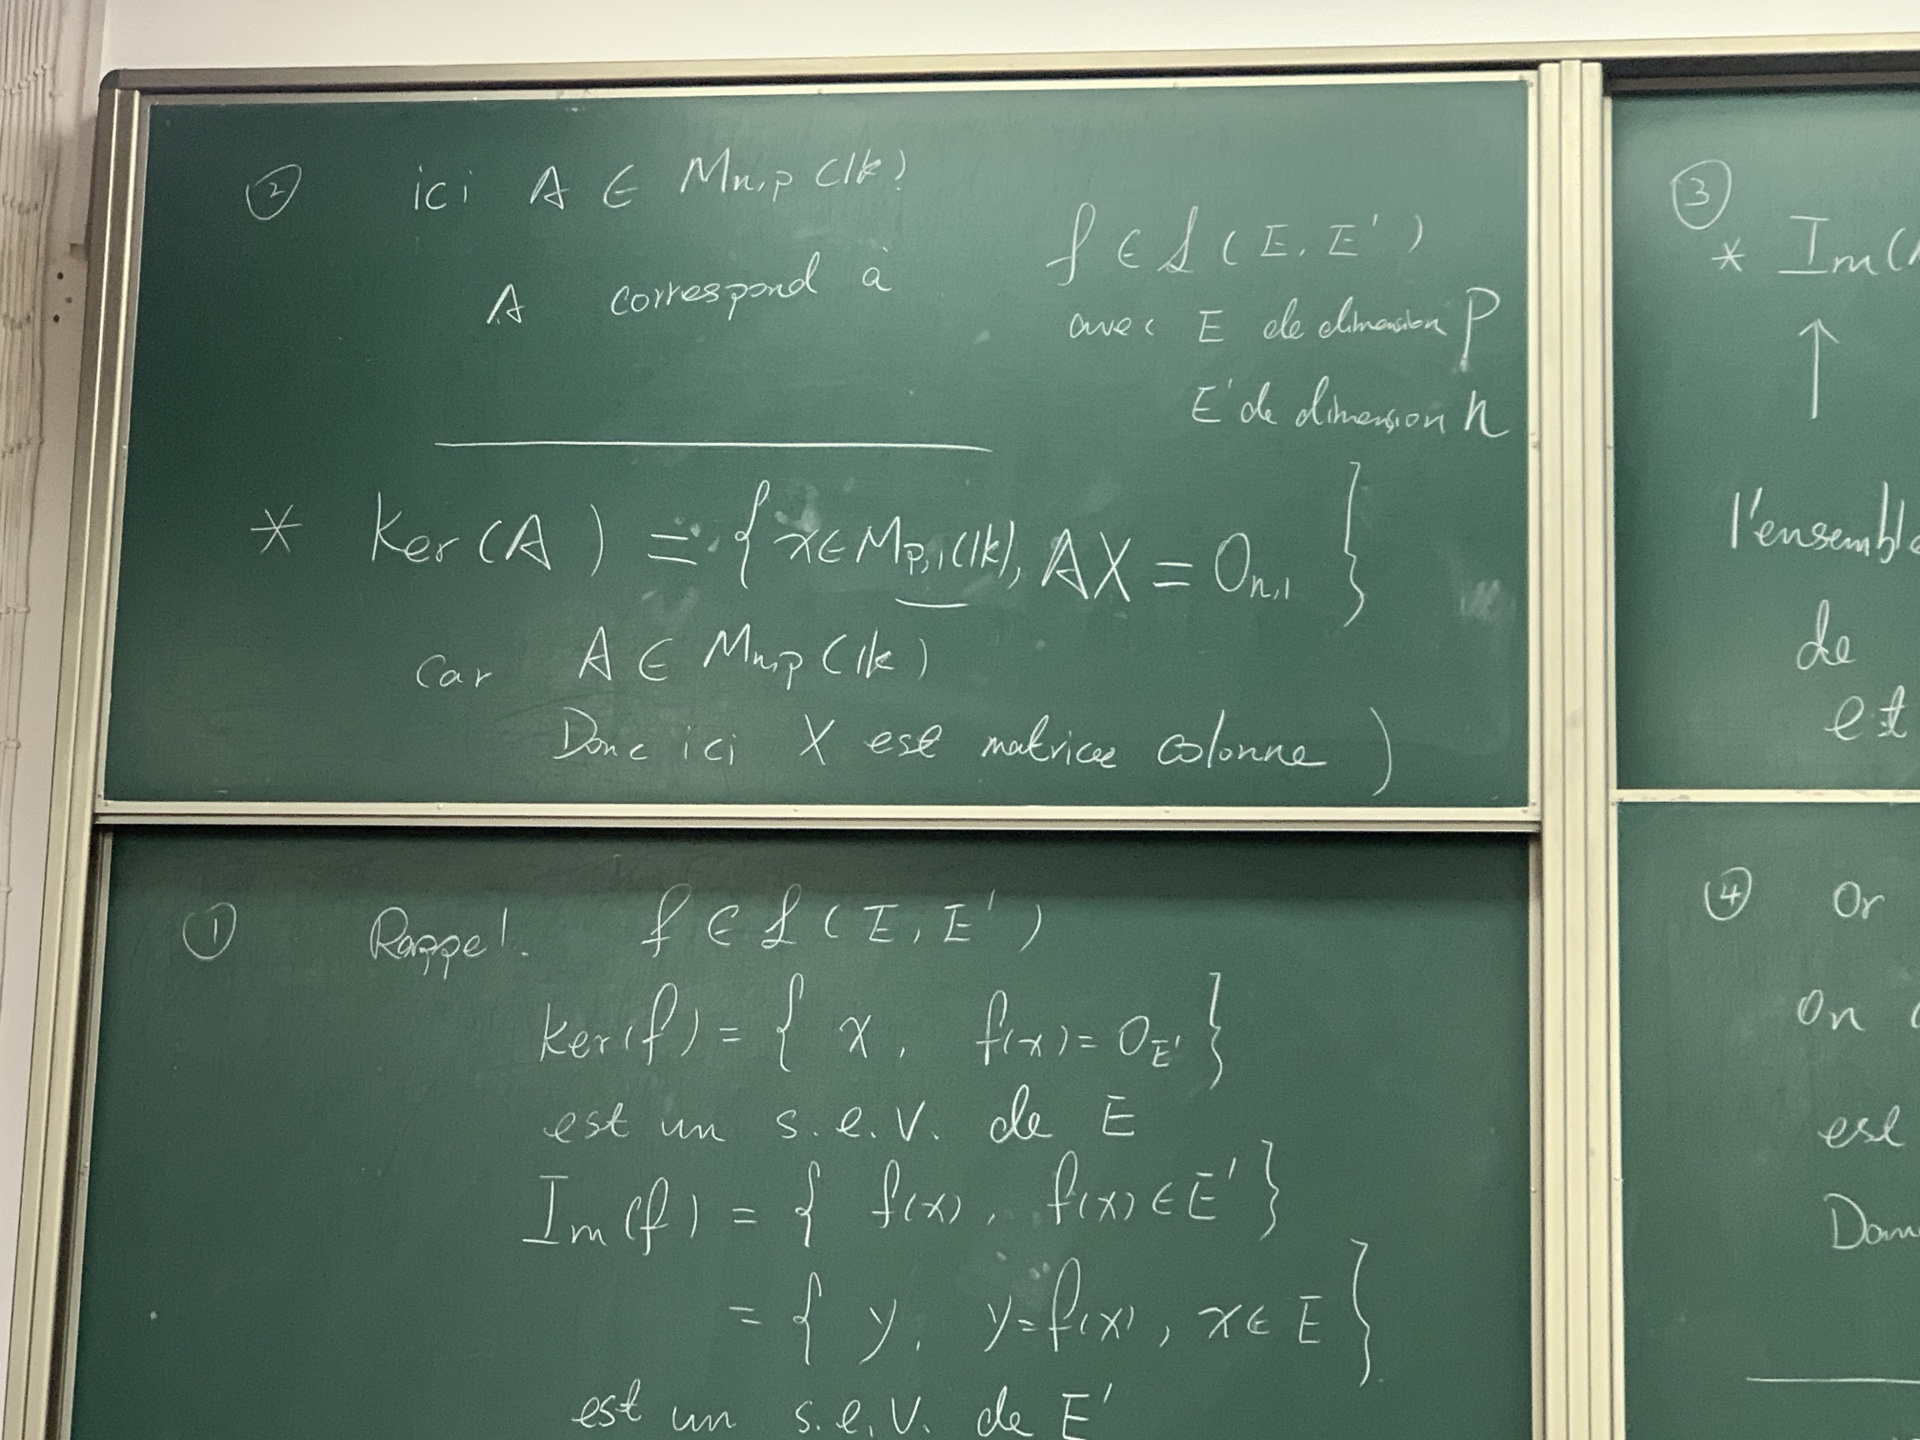 ② ici A ∈ Mn,p (lk)
A correspond à f ∈ L(E, E')
avec E de dimension p
E' de dimension n
* Ker(A) = { x ∈ Mp,1(lk), AX = 0n,1 }
car A ∈ Mn,p (lk)
Donc ici X est matrice colonne )
① Rappel. f ∈ L(E, E')
Ker(f) = { x, f(x) = 0E' }
est un s.e.v. de E
Im(f) = { f(x), f(x) ∈ E' }
= { y, y = f(x), x ∈ E }
est un s.e.v. de E'
③
* Im(
↑
l'ensemble
de
est
④ Or
on
est